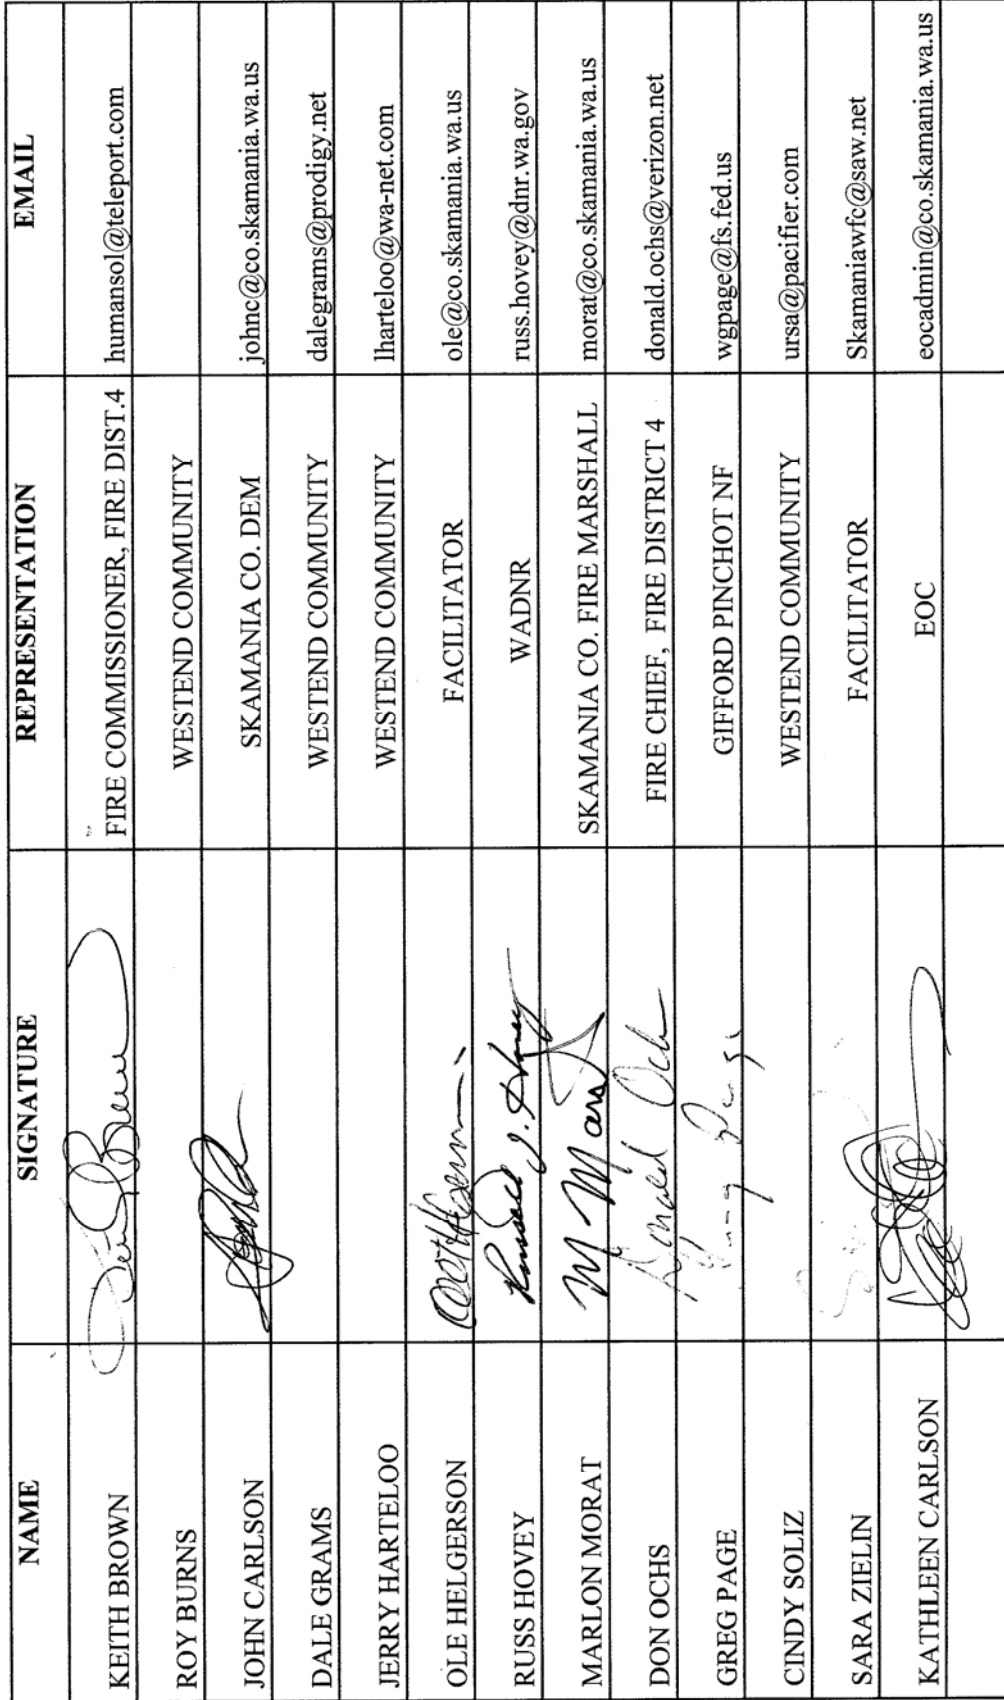 NAME SIGNATURE REPRESENTATION EMAIL
KEITH BROWN FIRE COMMISSIONER, FIRE DIST.4 humansol@teleport.com
ROY BURNS WESTEND COMMUNITY
JOHN CARLSON SKAMANIA CO. DEM johnc@co.skamania.wa.us
DALE GRAMS WESTEND COMMUNITY dalegrams@prodigy.net
JERRY HARTELOO WESTEND COMMUNITY lharteloo@wa-net.com
OLE HELGERSON FACILITATOR ole@co.skamania.wa.us
RUSS HOVEY Russell J. Hovey WADNR russ.hovey@dnr.wa.gov
MARLON MORAT SKAMANIA CO. FIRE MARSHALL morat@co.skamania.wa.us
DON OCHS Donald Och FIRE CHIEF, FIRE DISTRICT 4 donald.ochs@verizon.net
GREG PAGE Page GIFFORD PINCHOT NF wgpage@fs.fed.us
CINDY SOLIZ WESTEND COMMUNITY ursa@pacifier.com
SARA ZIELIN FACILITATOR Skamaniawfc@saw.net
KATHLEEN CARLSON EOC eocadmin@co.skamania.wa.us